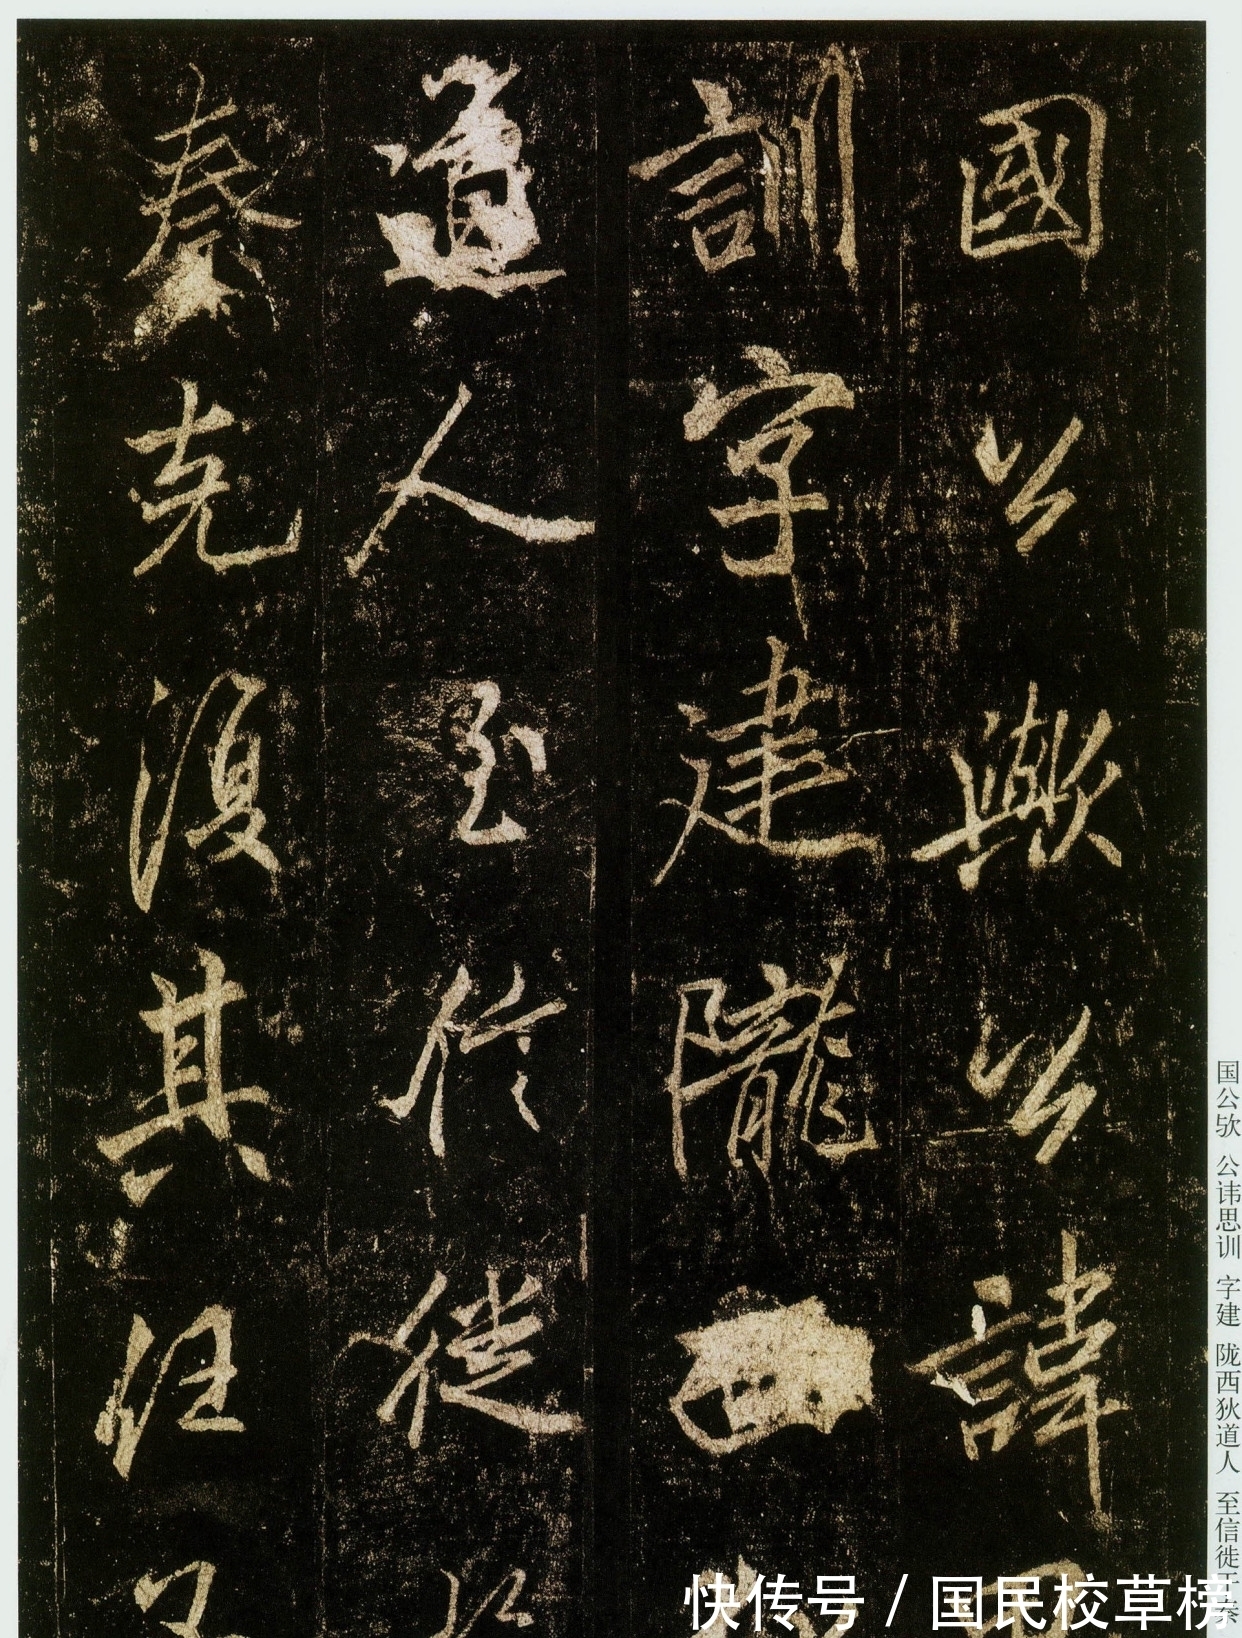 國公歟公諱思
訓字建隴西狄
道人至信徙於
秦克復其任
国公欤 公讳思训 字建 陇西狄道人 至信徙于秦
快传号 / 国民校草榜